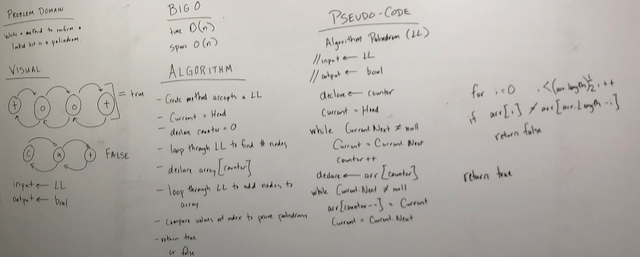 PROBLEM DOMAIN
Write a method to confirm a
linked list is a palindrome.
VISUAL
t
o
o
t
= true
C
a
t
FALSE
input ← LL
output ← bool
BIG O
time O(n)
space O(n)
ALGORITHM
- Create method accepts a LL
- Current = Head
- declare counter = 0
- loop through LL to find # nodes
- declare array [counter]
- loop through LL to add nodes to
array
- Compare values at index to prove palindrome
- return true
or false
PSEUDO-CODE
Algorithm Palindrome (LL)
// input ← LL
// output ← bool
declare ← counter
Current = Head
while Current.Next ≠ null
Current = Current.Next
counter ++
declare ← arr [counter]
while Current.Next ≠ null
arr[counter--] = Current
Current = Current.Next
for i=0 i<(arr.length)/2 i++
if arr[i] ≠ arr[arr.length -i]
return false
return true